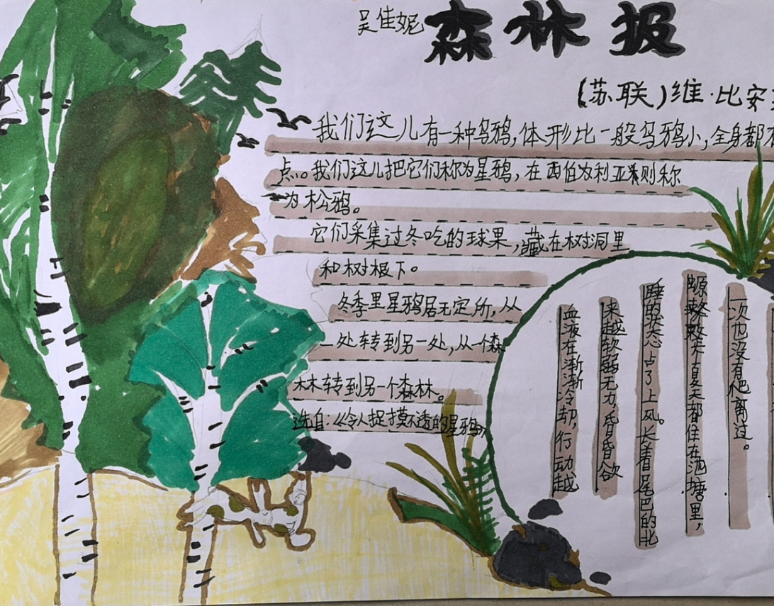 吴佳妮
森林报
(苏联)维·比安
我们这儿有一种乌鸦,体形比一般乌鸦小,全身都有
点。我们这儿把它们称为星鸦,在西伯利亚则称
为松鸦。
它们采集过冬吃的球果,藏在树洞里
和树根下。
冬季里星鸦居无定所,从
一处转到另一处,从一个森
林转到另一个森林。
选自:《令人捉摸不透的星鸦》
一次也没有他离过。
螈整整一个夏天都住在池塘里,
睡的姿态占了上风。长着尾巴的北
来越软弱无力,昏昏欲
血液在渐渐冷却,行动越